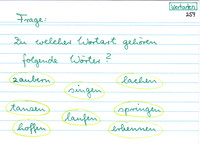 Wortarten
257
Frage:
Zu welcher Wortart gehören
folgende Wörter?
zaubern
lachen
singen
tanzen
springen
laufen
hoffen
erkennen